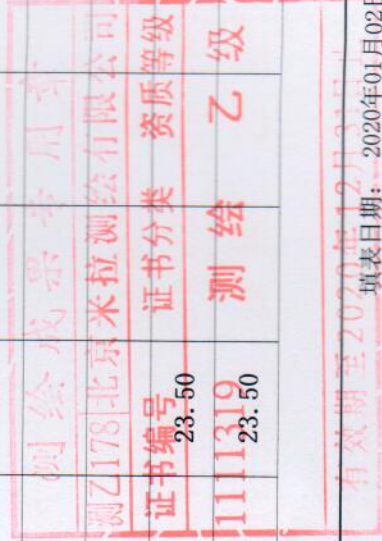 测绘成果专用章
测乙178 北京米拉测绘有限公司
证书编号 证书分类 资质等级
11111319 测绘 乙级
有效期至2020年12月31日
23.50
23.50
填表日期: 2020年01月02日